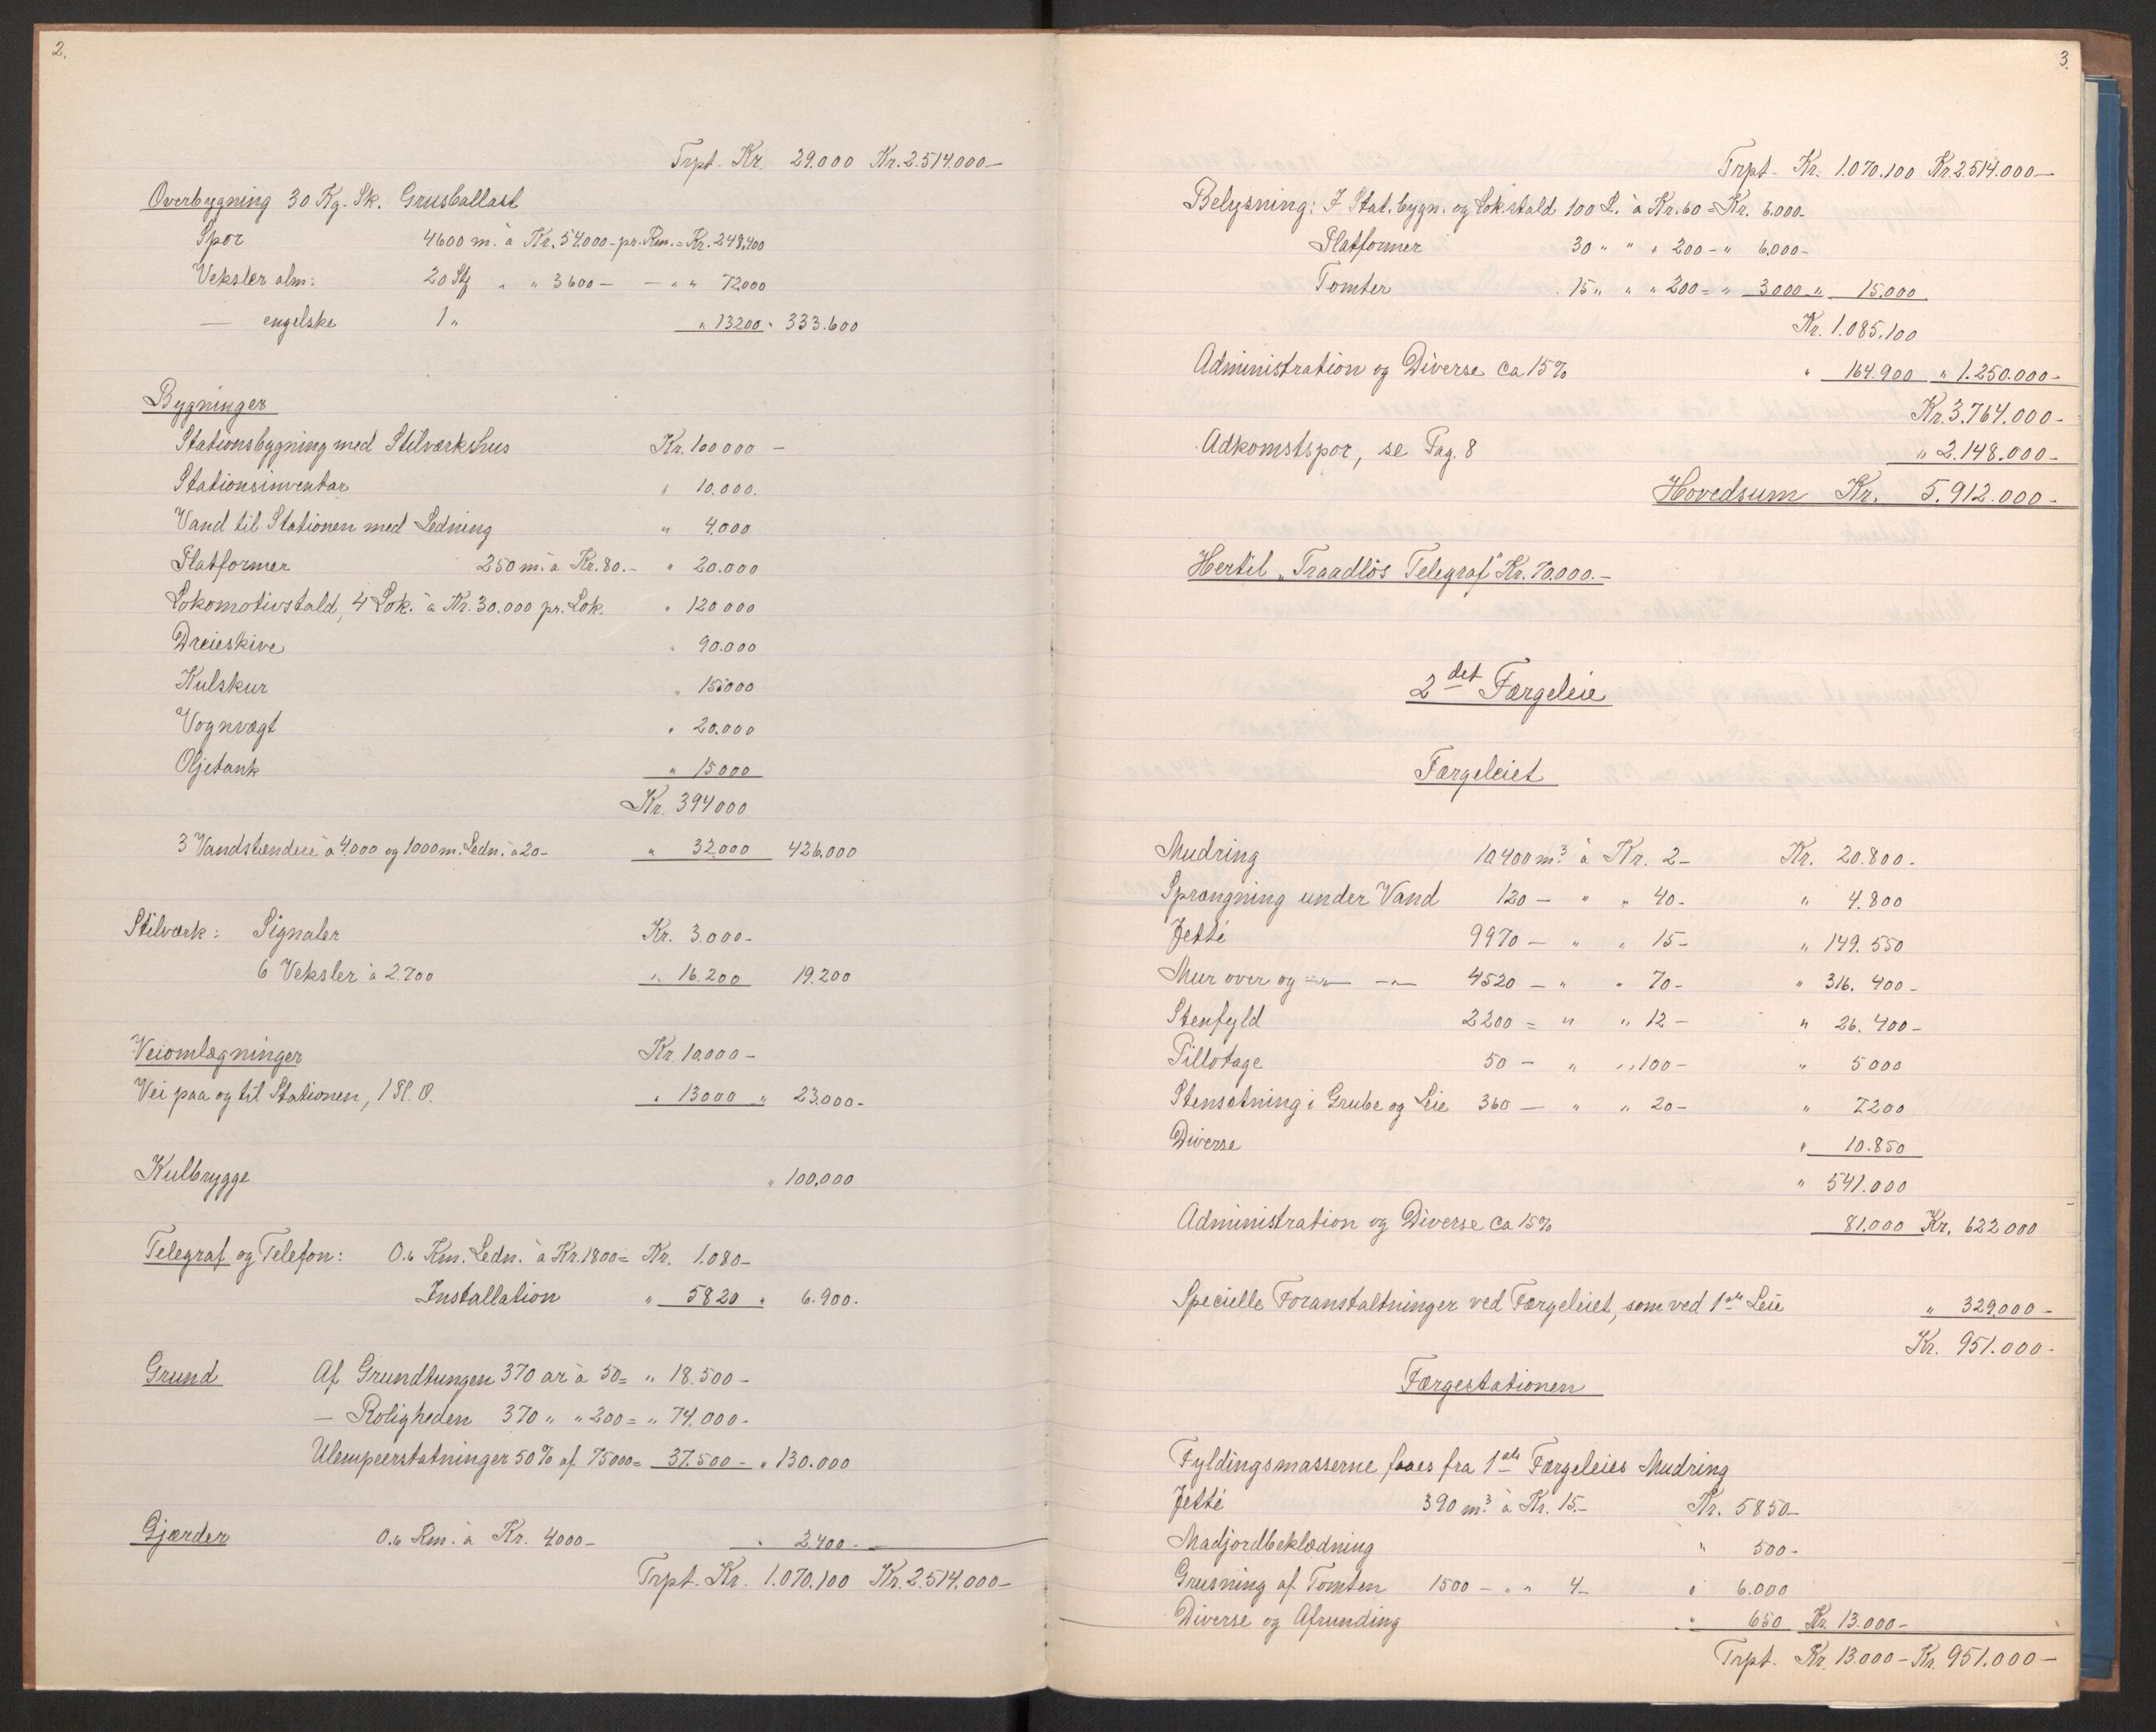 2.
Trpt. Kr. 29.000 Kr. 2.514.000—
Overbygning 30 Kg. Sk. Grusballast
Spor 4600 m. à Kr. 54.000- pr. Km. = Kr. 248,400
Veksler alm: 20 Stj " " 3600 — — " " 72.000
— engelske 1 " " 13200 " 333.600
Bygninger
Stationsbygning med Stilværkshus Kr. 100000 —
Stationsinventar " 10.000.
Vand til Stationen med Ledning " 4.000
Platformer 250 m. à Kr. 80.— " 20.000
Lokomotivstald, 4 Lok. à Kr. 30.000 pr. Lok. " 120000
Dreieskive " 90.000
Kulskur " 15000
Vognvægt " 20.000
Oljetank " 15000
Kr. 394000
3 Vandstændere à 4.000 og 1000 m. Ledn. à 20- " 32.000 426,000
Stilværk: Signaler Kr. 3.000-
6 Veksler à 2.700 " 16.200 19.200
Veiomlægninger Kr. 10.000—
Vei paa og til Stationen, 1 Pl. O. " 13000 " 23.000-
Kulbrygge " 100,000
Telegraf og Telefon: 0.6 Km. Ledn. à Kr. 1800 = Kr. 1.080-
Installation " 5820 " 6.900.
Grund Af Grundtungen 370 ar à 50 = " 18.500—
— Roligheden 370 " " 200 = " 74.000-
Ulempeerstatninger 50% af 75000 = 37.500 — " 130.000
Gjærder 0.6 Km. à Kr. 4000— " 2.400-
Trpt. Kr. 1.070.100 Kr. 2.514.000—
3.
Trpt. Kr. 1.070.100 Kr. 2.514.000—
Belysning: I Stat. bygn. og Lok. stald 100 L. à Kr. 60 = Kr. 6.000-
Platformer 30 " " " 200 - " 6.000-
Tomter 15 " " " 200 = " 3000 " 15.000
Kr. 1.085.100
Administration og Diverse ca 15% " 164.900 " 1.250.000-
Kr. 3.764.000-
Adkomstspor, se Pag. 8 " 2.148.000-
Hovedsum Kr. 5.912.000-
Hertil „Traadlös Telegraf" Kr. 70.000.—
2det Færgeleie
Færgeleiet
Mudring 10400 m³ à Kr. 2— Kr. 20.800-
Sprængning under Vand 120 — " " 40- " 4.800
Jetté 9970 — " " 15— " 149.550
Mur over og —"— —"— 4520 — " " 70- " 316.400-
Stenfyld 2200 = " " 12— " 26.400—
Pillotage 50 — " " 100— " 5000
Stensætning i Grube og Leie 360 — " " 20— " 7200
Diverse " 10.850
" 541.000
Administration og Diverse ca 15% 81.000 Kr. 622.000
Specielle Foranstaltninger ved Færgeleiet, som ved 1ste Leie " 329.000—
Kr. 951.000-
Færgestationen
Fyldingsmasserne faaes fra 1ste Færgeleies Mudring
Jetté 390 m³ à Kr. 15.— Kr. 5850—
Madjordbeklædning " 500-
Grusning af Tomten 1500 — " " 4— " 6.000
Diverse og Afrunding " 650 Kr. 13.000—
Trpt. Kr. 13.000— Kr. 951.000—